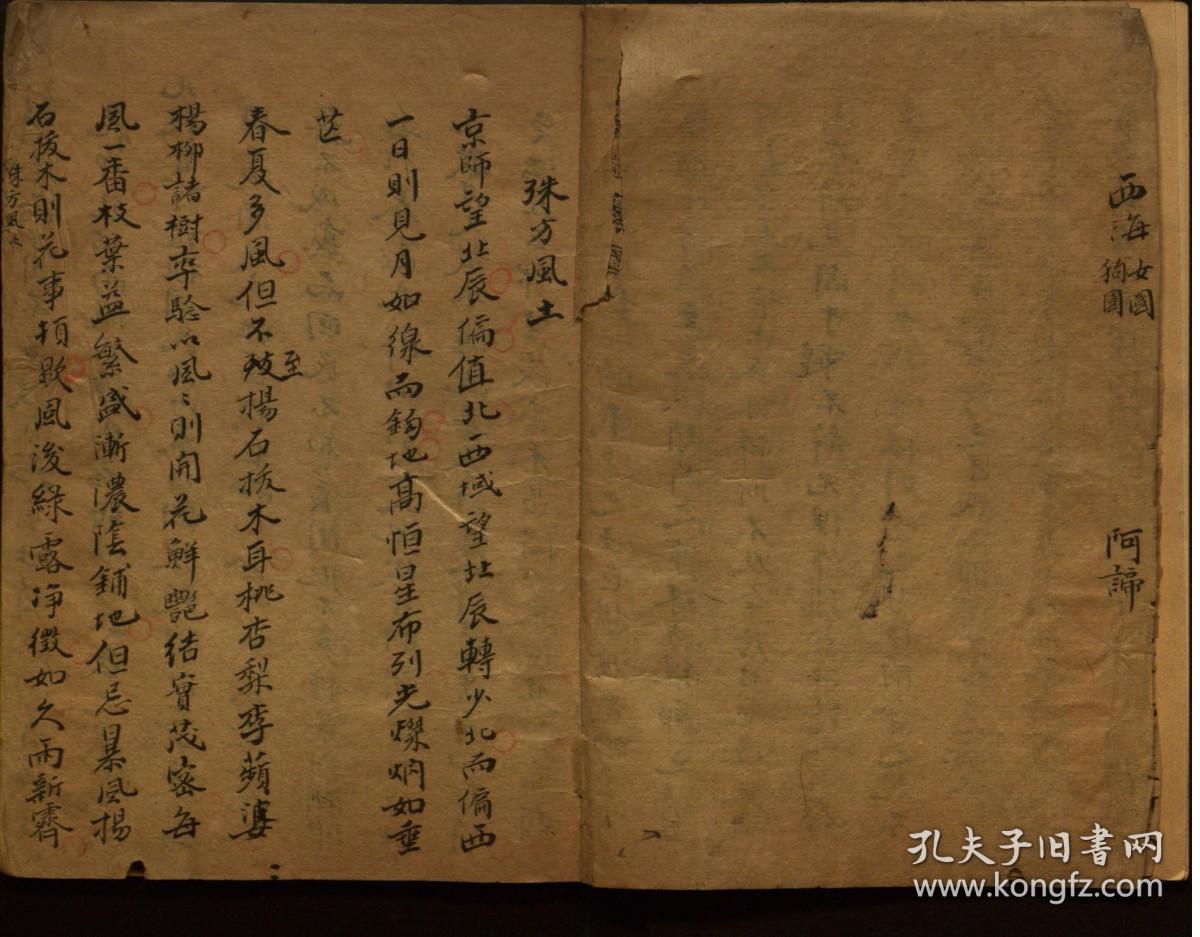 西海 女國 狗國 阿諦
殊方風土
京師望北辰偏值北西域望北辰轉少北而偏西
一日則見月如線而鈎地高恒星布列光爍烱如垂
芒
春夏多風但不至揚石拔木耳桃杏梨李蘋婆
楊柳諸樹率驗以風〻則開花鮮艷結實茂密每
風一番枝葉益繁盛漸濃陰鋪地但忌暴風揚
石拔木則花事頓歇風後綠露淨徵如久雨新霽
殊方風土
孔夫子旧书网
www.kongfz.com